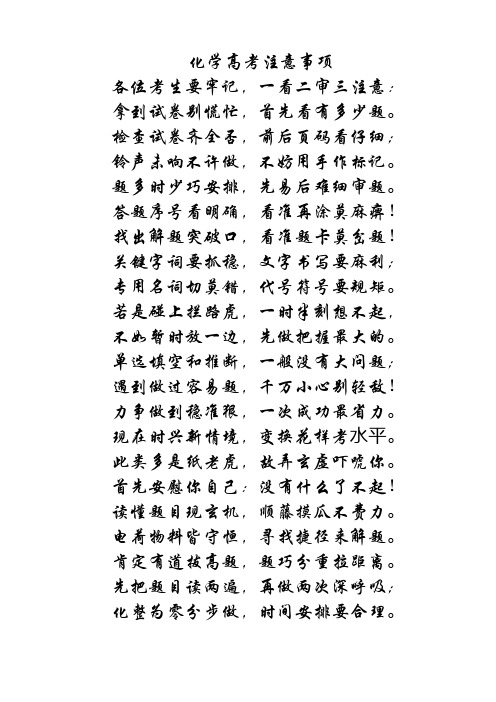 化学高考注意事项
各位考生要牢记，一看二审三注意：
拿到试卷别慌忙，首先看有多少题。
检查试卷齐全否，前后页码看仔细；
铃声未响不许做，不妨用手作标记。
题多时少巧安排，先易后难细审题。
答题序号看明确，看准再涂莫麻痹！
找出解题突破口，看准题卡莫岔题！
关键字词要抓稳，文字书写要麻利；
专用名词切莫错，代号符号要规矩。
若是碰上拦路虎，一时半刻想不起，
不如暂时放一边，先做把握最大的。
单选填空和推断，一般没有大问题；
遇到做过容易题，千万小心别轻敌！
力争做到稳准狠，一次成功最省力。
现在时兴新情境，变换花样考水平。
此类多是纸老虎，故弄玄虚吓唬你。
首先安慰你自己：没有什么了不起！
读懂题目现玄机，顺藤摸瓜不费力。
电荷物料皆守恒，寻找捷径来解题。
肯定有道拔高题，题巧分重拉距离。
先把题目读两遍，再做两次深呼吸；
化整为零分步做，时间安排要合理。